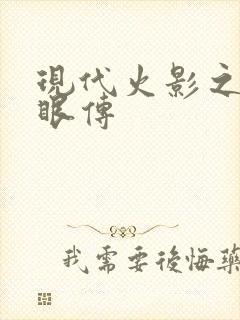 現代火影之
眼傳
我需要後悔藥